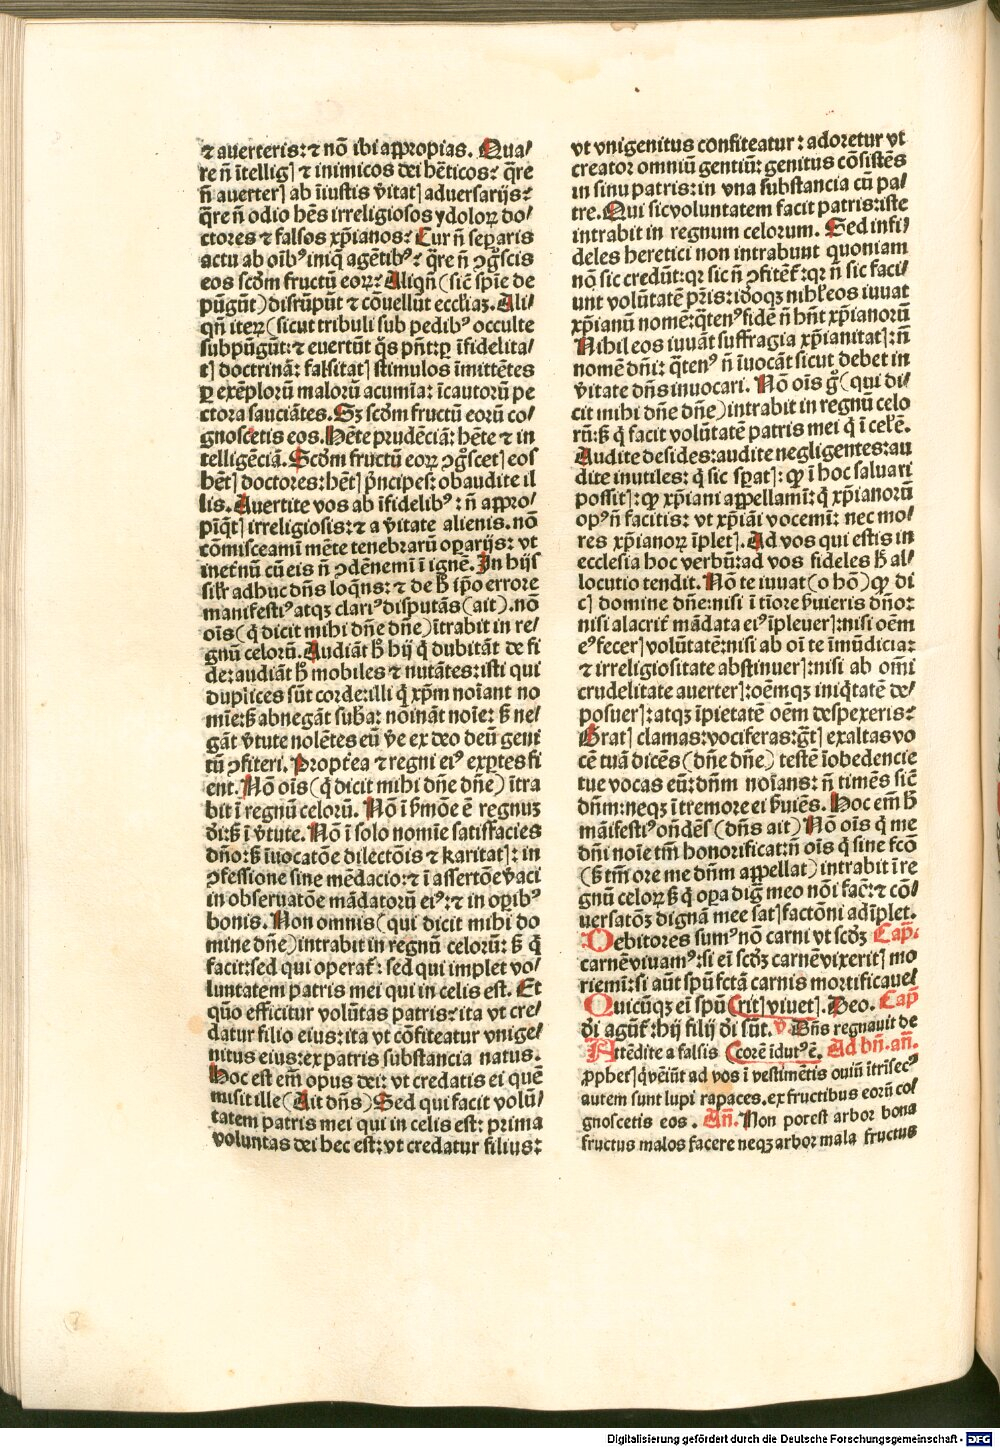 ⁊ auerteris: ⁊ nō ibi appropias. Qua⸗
re n̄ ītellig] ⁊ inimicos dei hēticos? q̄re
n̄ auerter] ab īiustis v̄itat] aduersarijs?
q̄re n̄ odio hēs irreligiosos ydoloꝝ do⸗
ctores ⁊ falsos xp̄ianos? Cur n̄ separis
actu ab oībꝰ iniq̄ agētibꝰ? q̄re n̄ ꝯgͦscis
eos scd̄m fructū eoꝝ? Aliqn̄ (sic̄ spīe de
pūgūt) disrūpūt ⁊ cōuellūt eccl̄iaꝫ. Ali⸗
qn̄ iteꝝ (sicut tribuli sub pedibꝰ occulte
subpūgūt: ⁊ euertūt q̄s pn̄t: ꝑ īfidelita⸗
t] doctrinā: falsitat] stimulos īmittētes
ꝑ exēplorū malorū acumīa: īcautorū pe
ctora sauciātes. Sꝫ scd̄m fructū eorū co⸗
gnoscetis eos. Hēte prudēciā: hēte ⁊ in
telligēciā. Scd̄m fructū eoꝝ ꝯgͦscet] eos
hēt] doctores: hēt] p̄ncipes: obaudite il
lis. Auertite vos ab īfidelibꝰ: n̄ appro⸗
pīq̄t] irreligiosis: ⁊ a v̄itate alienis. nō
cōmisceamī mēte tenebrarū oꝑarijs: vt
inet̄nū cū eis n̄ ꝯdēnemī ī ignē. In hijs
sil̄r adhuc dn̄s loqn̄s: ⁊ de h̄ ip̄o errore
manifestiꝰ atqꝫ clariꝰ disputās (ait). nō
oīs (q̄ dicit mihi dn̄e dn̄e) ītrabit in re⸗
gnū celorū. Audiāt h̄ hij q̄ dubitāt de fi
de: audiāt h̄ mobiles ⁊ nutātes: isti qui
duplices sūt corde: illi q̄ xp̄m noīant no
mīe: s̄ abnegāt sub̄a: nōināt noīe: s̄ ne⸗
gāt v̄tute nolētes eū v̄e ex deo deū geni
tū ꝯfiteri. Propt̄ea ⁊ regni eiꝰ exꝑtes fi
ent. Nō oīs (q̄ dicit mihi dn̄e dn̄e) ītra
bit ī regnū celorū. Nō ī s̄mōe ē regnuꝫ
dī: s̄ ī v̄tute. Nō ī solo nomīe satisfacies
dn̄o: s̄ īuocatōe dilectōis ⁊ karitat]: in
ꝯfessione sine mēdacio: ⁊ ī assertōe v̄aci
in obseruatōe mādatorū eiꝰ: ⁊ in oꝑibꝰ
bonis. Non omnis (qui dicit mihi do
mine dn̄e) intrabit in regnū celorū: s̄ q̄
facit: sed qui operat̄: sed qui implet vo⸗
luntatem patris mei qui in celis est. Et
qūo efficitur volūtas patris: ita vt cre⸗
datur filio eius: ita vt cōfiteatur vnige⸗
nitus eius: ex patris substancia natus.
Hoc est em̄ opus dei: vt credatis ei quē
misit ille (Ait dn̄s) Sed qui facit volū⸗
tatem patris mei qui in celis est: prima
voluntas dei hec est: vt credatur filius:
vt vnigenitus confiteatur: adoretur vt
creator omniū gentiū: genitus cōsistēs
in sinu patris: in vna substancia cū pa⸗
tre. Qui sic voluntatem facit patris: iste
intrabit in regnum celorum. Sed infi⸗
deles heretici non intrabunt quoniam
nō sic credūt: qꝛ sic n̄ ꝯfitēt̄: qꝛ n̄ sic faci⸗
unt volūtatē pr̄is: id̄oqꝫ nihl̄ eos iuuat
xp̄ianū nomē: q̄tenꝰ fidē n̄ hn̄t xp̄ianorū
Nihil eos iuuāt suffragia xp̄ianitat]: n̄
nomē dn̄i: q̄tenꝰ n̄ īuocāt sicut debet in
v̄itate dn̄s inuocari. Nō oīs gͦ (qui di⸗
cit mihi dn̄e dn̄e) intrabit in regnū celo
rū: s̄ q̄ facit volūtatē patris mei q̄ ī cel̄ ē.
Audite desides: audite negligentes: au
dite inutiles: q̄ sic sꝑat]: ꝙ ī hoc saluari
possit]: ꝙ xp̄iani appellamī: q̄ xp̄ianorū
opꝰ n̄ facitis: vt xp̄iāi vocemī: nec mo⸗
res xp̄ianoꝝ īplet]. Ad vos qui estis in
ecclesia hoc verbū: ad vos fideles h̄ al⸗
locutio tendit. Nō te iuuat (o hō) ꝙ di
c] domine dn̄e: nisi ī tīore s̄uieris dn̄o:
nisi alacrit̄ mādata eiꝰ īpleuer]: nisi oēm
eꝰ fecer] volūtatē: nisi ab oī te īmūdicia:
⁊ irreligiositate abstinuer]: nisi ab om̄i
crudelitate auerter]: oēmqꝫ iniq̄tatē de⸗
posuer]: atqꝫ īpietatē oēm despexeris?
Grat] clamas: vociferas: gr̄t] exaltas vo
cē tuā dicēs (dn̄e dn̄e) testē īobedencie
tue vocas eū: dn̄m noīans: n̄ timēs sic̄
dn̄m: neqꝫ ī tremore ei s̄uiēs. Hoc em̄ h̄
māifestiꝰ on̄dēs (dn̄s ait) Nō oīs q̄ me
dn̄i noīe tm̄ honorificat: n̄ oīs q̄ sine fc̄o
(s̄ tm̄ ore me dn̄m appellat) intrabit ī re
gnū celoꝝ: s̄ q̄ oꝑa digͣ meo nōi fac̄: ⁊ cō⸗
uersatōꝫ dignā mee sat]factōni adīplet.
Debitores sumꝰ nō carni vt scd̄ꝫ Cap̄.
carnē viuamꝰ: si eī scd̄ꝫ carnē vixerit] mo
riemī: si aūt spū fctā carnis mortificauel
Quicūqꝫ eī spū (rit] viuet]. Deo. Cap̄
dī agūt̄: hij filij dī sūt. V. Dn̄s regnauit de
Attēdite a falsis (corē īdutꝰ ē. Ad bn̄. an̄.
ꝓphet] q̄ vēiūt ad vos ī vestimētis ouiū ītrīsecꝰ
autem sunt lupi rapaces. ex fructibus eorū co⸗
gnoscetis eos. An̄. Non potest arbor bona
fructus malos facere neqꝫ arbor mala fructus
Digitalisierung gefördert durch die Deutsche Forschungsgemeinschaft - DFG